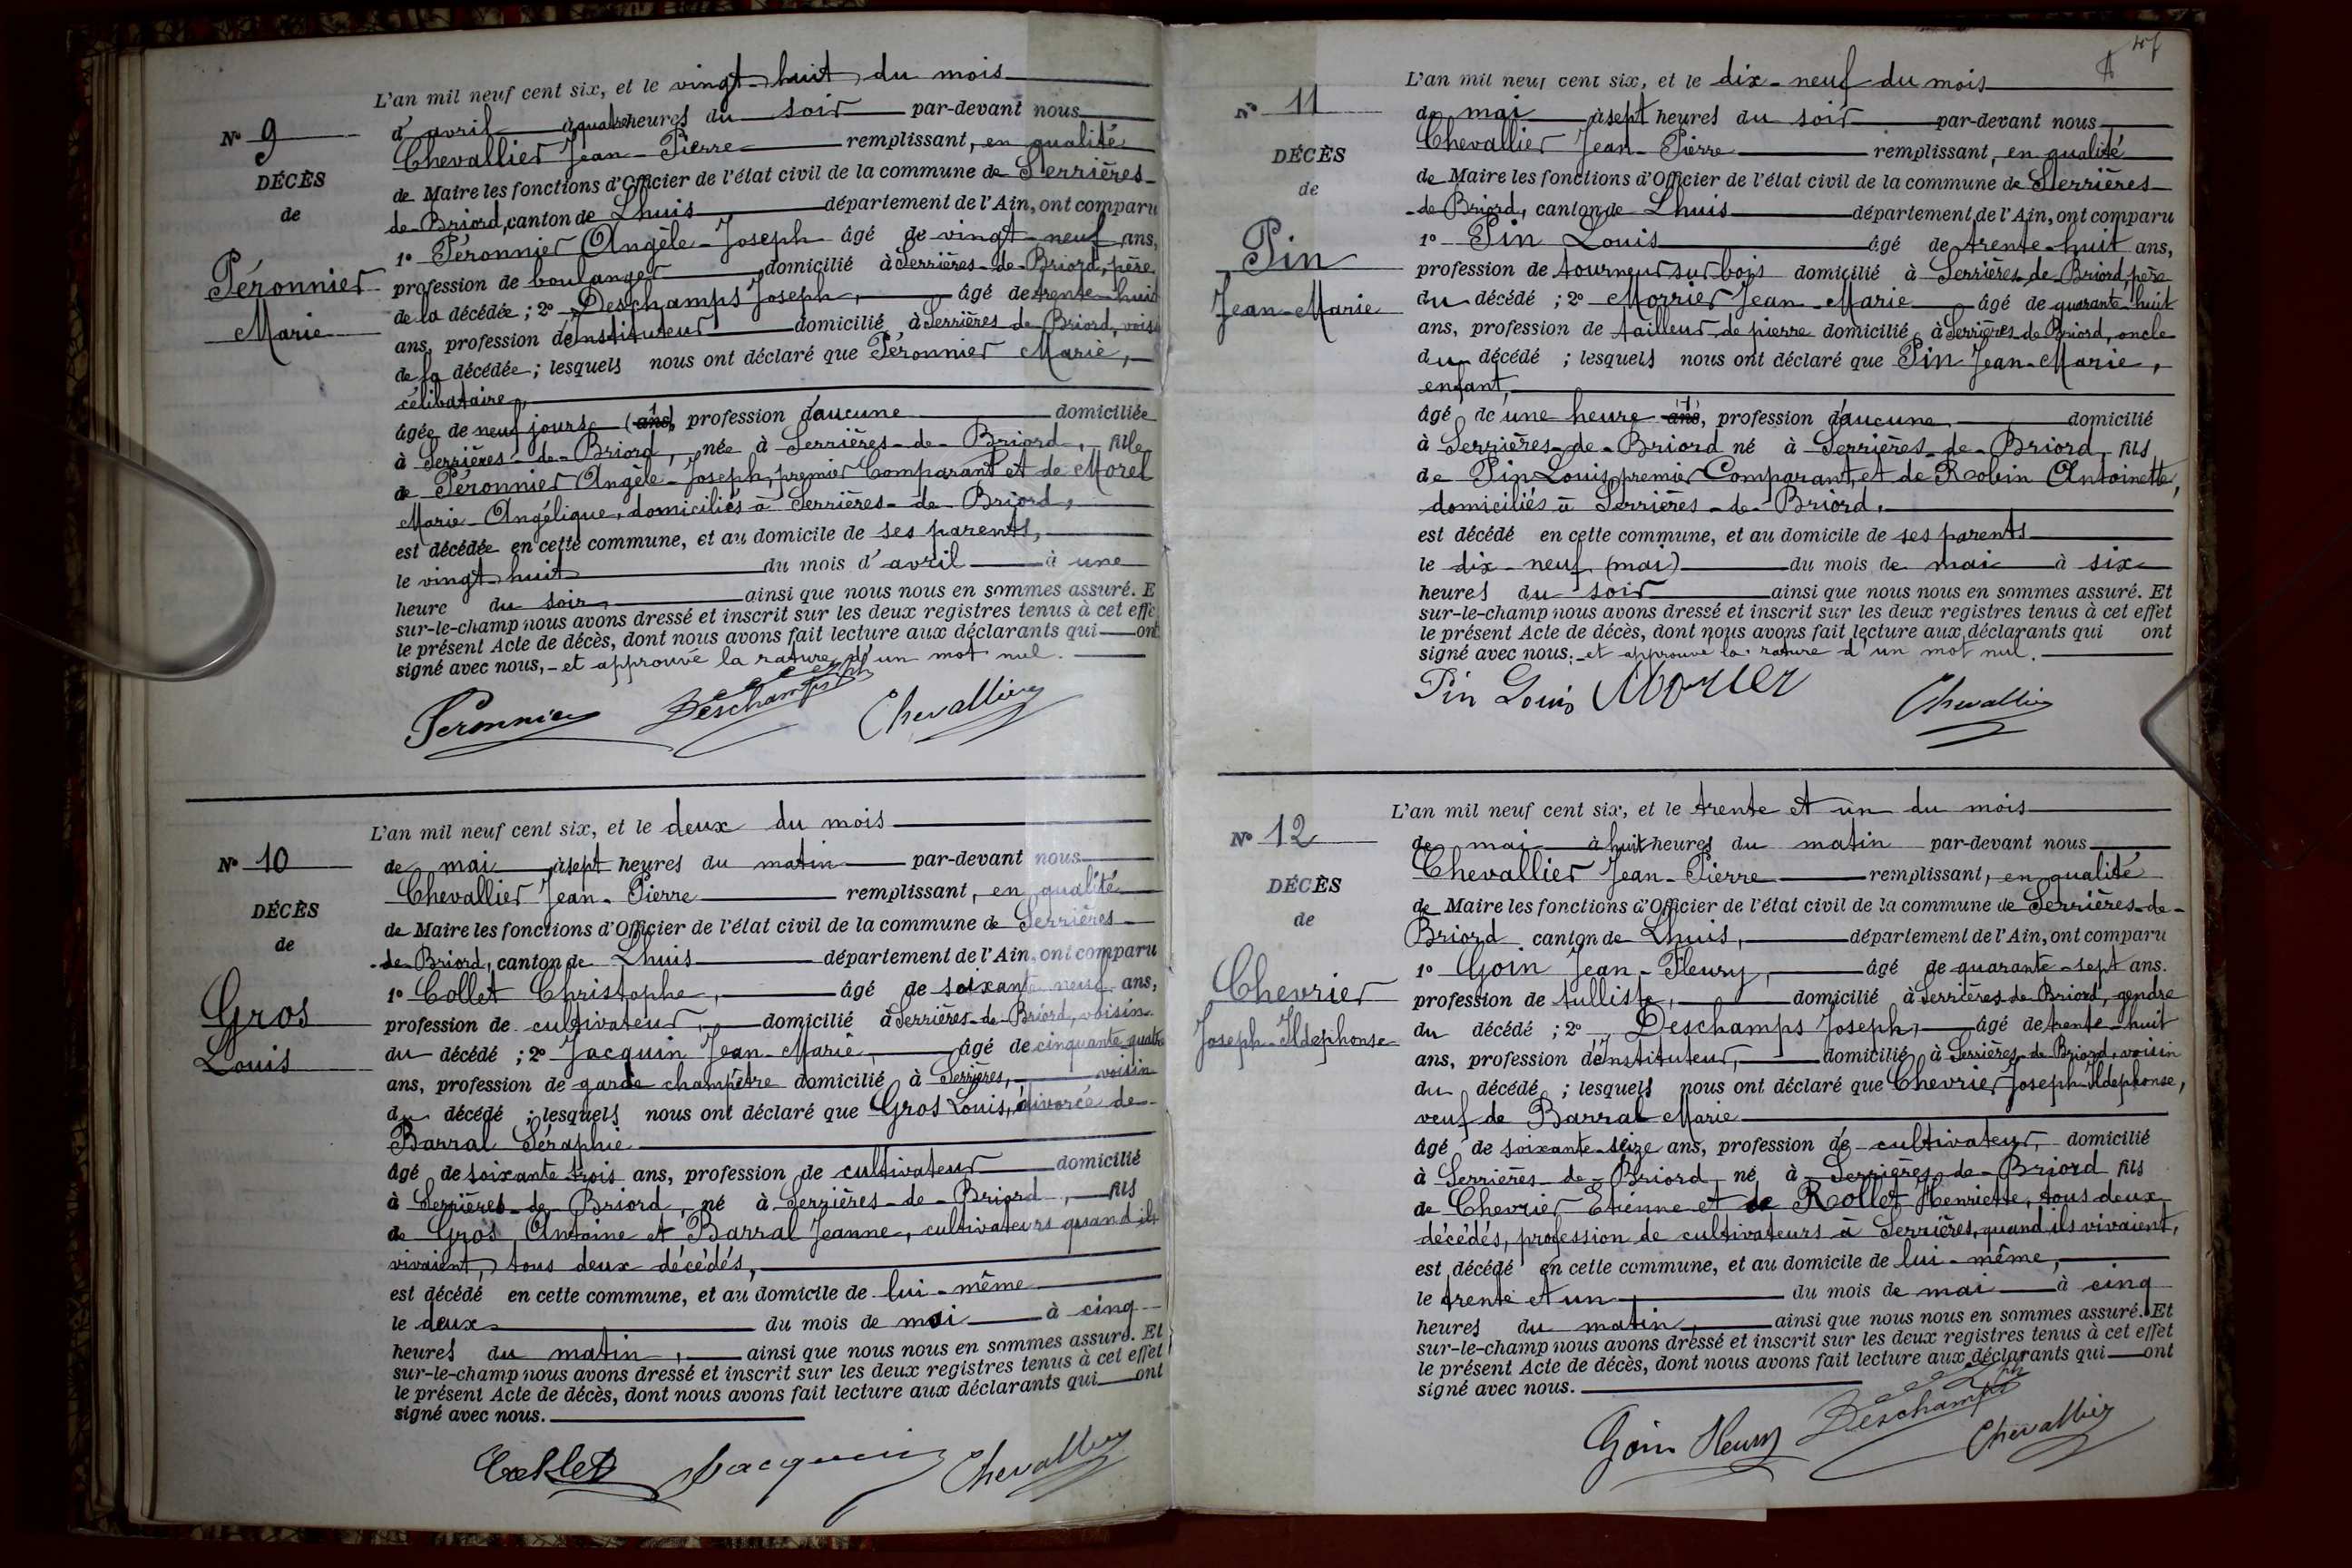 L'an mil neuf cent six, et le vingt-huit du mois
N° 9
d'avril à quatre heures du soir par-devant nous
Chevallier Jean-Pierre remplissant, en qualité
DÉCÈS
de Maire les fonctions d'Officier de l'état civil de la commune de Serrières-
de
de-Briord, canton de Lhuis département de l'Ain, ont comparu
1° Péronnier Angèle-Joseph âgé de vingt-neuf ans,
Péronnier
profession de boulanger domicilié à Serrières-de-Briord, père
de la décédée ; 2° Deschamps Joseph, âgé de trente-huit
Marie
ans, profession d'instituteur domicilié à Serrières-de-Briord, vois
de la décédée ; lesquels nous ont déclaré que Péronnier Marie,
célibataire,
âgée de neuf jours (ans), profession d'aucune domiciliée
à Serrières-de-Briord, née à Serrières-de-Briord, fille
de Péronnier Angèle-Joseph, premier Comparant et de Morel
Marie-Angélique, domiciliés à Serrières-de-Briord,
est décédée en cette commune, et au domicile de ses parents,
le vingt-huit du mois d'avril à une
heure du soir, ainsi que nous nous en sommes assuré. E
sur-le-champ nous avons dressé et inscrit sur les deux registres tenus à cet effe
le présent Acte de décès, dont nous avons fait lecture aux déclarants qui ont
signé avec nous, - et approuvé la rature d'un mot nul.
Peronnier Deschamps Jph Chevallier
L'an mil neuf cent six, et le deux du mois
N° 10
de mai à sept heures du matin par-devant nous
Chevallier Jean-Pierre remplissant, en qualité
DÉCÈS
de Maire les fonctions d'Officier de l'état civil de la commune de Serrières
de
-de-Briord, canton de Lhuis département de l'Ain, ont comparu
1° Collet Christophe, âgé de soixante neuf ans,
Gros
profession de cultivateur, domicilié à Serrières-de-Briord, voisin
du décédé ; 2° Jacquin Jean-Marie, âgé de cinquante-quatre
Louis
ans, profession de garde champêtre domicilié à Serrières, voisin
du décédé ; lesquels nous ont déclaré que Gros Louis, divorcé de
Barral Séraphie
âgé de soixante trois ans, profession de cultivateur domicilié
à Serrières-de-Briord, né à Serrières-de-Briord, fils
de Gros Antoine et Barral Jeanne, cultivateurs quand ils
vivaient, tous deux décédés,
est décédé en cette commune, et au domicile de lui-même
le deux du mois de mai à cinq
heures du matin, ainsi que nous nous en sommes assuré. Et
sur-le-champ nous avons dressé et inscrit sur les deux registres tenus à cet effet
le présent Acte de décès, dont nous avons fait lecture aux déclarants qui ont
signé avec nous.
Collet Jacquin Chevallier
L'an mil neuf cent six, et le dix-neuf du mois
N° 11
de mai à sept heures du soir par-devant nous
Chevallier Jean-Pierre remplissant, en qualité
DÉCÈS
de Maire les fonctions d'Officier de l'état civil de la commune de Serrières
de
-de Briord, canton de Lhuis département de l'Ain, ont comparu
1° Pin Louis âgé de trente-huit ans,
Pin
profession de tourneur sur bois domicilié à Serrières de Briord, père
du décédé ; 2° Morrier Jean-Marie âgé de quarante-huit
Jean-Marie
ans, profession de tailleur de pierre domicilié à Serrières-de Briord, oncle
du décédé ; lesquels nous ont déclaré que Pin Jean-Marie,
enfant,
âgé de une heure ans, profession d'aucune domicilié
à Serrières-de-Briord né à Serrières-de-Briord, fils
de Pin Louis, premier Comparant, et de Robin Antoinette,
domiciliés à Serrières-de-Briord,
est décédé en cette commune, et au domicile de ses parents
le dix-neuf (mai) du mois de mai à six
heures du soir ainsi que nous nous en sommes assuré. Et
sur-le-champ nous avons dressé et inscrit sur les deux registres tenus à cet effet
le présent Acte de décès, dont nous avons fait lecture aux déclarants qui ont
signé avec nous. - et approuvé la rature d'un mot nul.
Pin Louis Morier Chevallier
L'an mil neuf cent six, et le trente et un du mois
N° 12
de mai à huit heures du matin par-devant nous
Chevallier Jean-Pierre remplissant, en qualité
DÉCÈS
de Maire les fonctions d'Officier de l'état civil de la commune de Serrières-de-
de
Briord canton de Lhuis, département de l'Ain, ont comparu
1° Goin Jean-Fleury, âgé de quarante-sept ans.
Chevrier
profession de tulliste, domicilié à Serrières de Briord, gendre
du décédé ; 2° Deschamps Joseph, âgé de trente-huit
Joseph-Ildephonse
ans, profession d'instituteur, domicilié à Serrières-de Briord, voisin
du décédé ; lesquels nous ont déclaré que Chevrier Joseph-Ildephonse,
veuf de Barral Marie
âgé de soixante-seize ans, profession de cultivateur, domicilié
à Serrières-de-Briord né à Serrières-de-Briord fils
de Chevrier Etienne et de Rollet Henriette, tous deux
décédés, profession de cultivateurs à Serrières, quand ils vivaient,
est décédé en cette commune, et au domicile de lui-même,
le trente et un du mois de mai à cinq
heures du matin, ainsi que nous nous en sommes assuré. Et
sur-le-champ nous avons dressé et inscrit sur les deux registres tenus à cet effet
le présent Acte de décès, dont nous avons fait lecture aux déclarants qui ont
signé avec nous.
Goin Fleury Deschamps Jph Chevallier